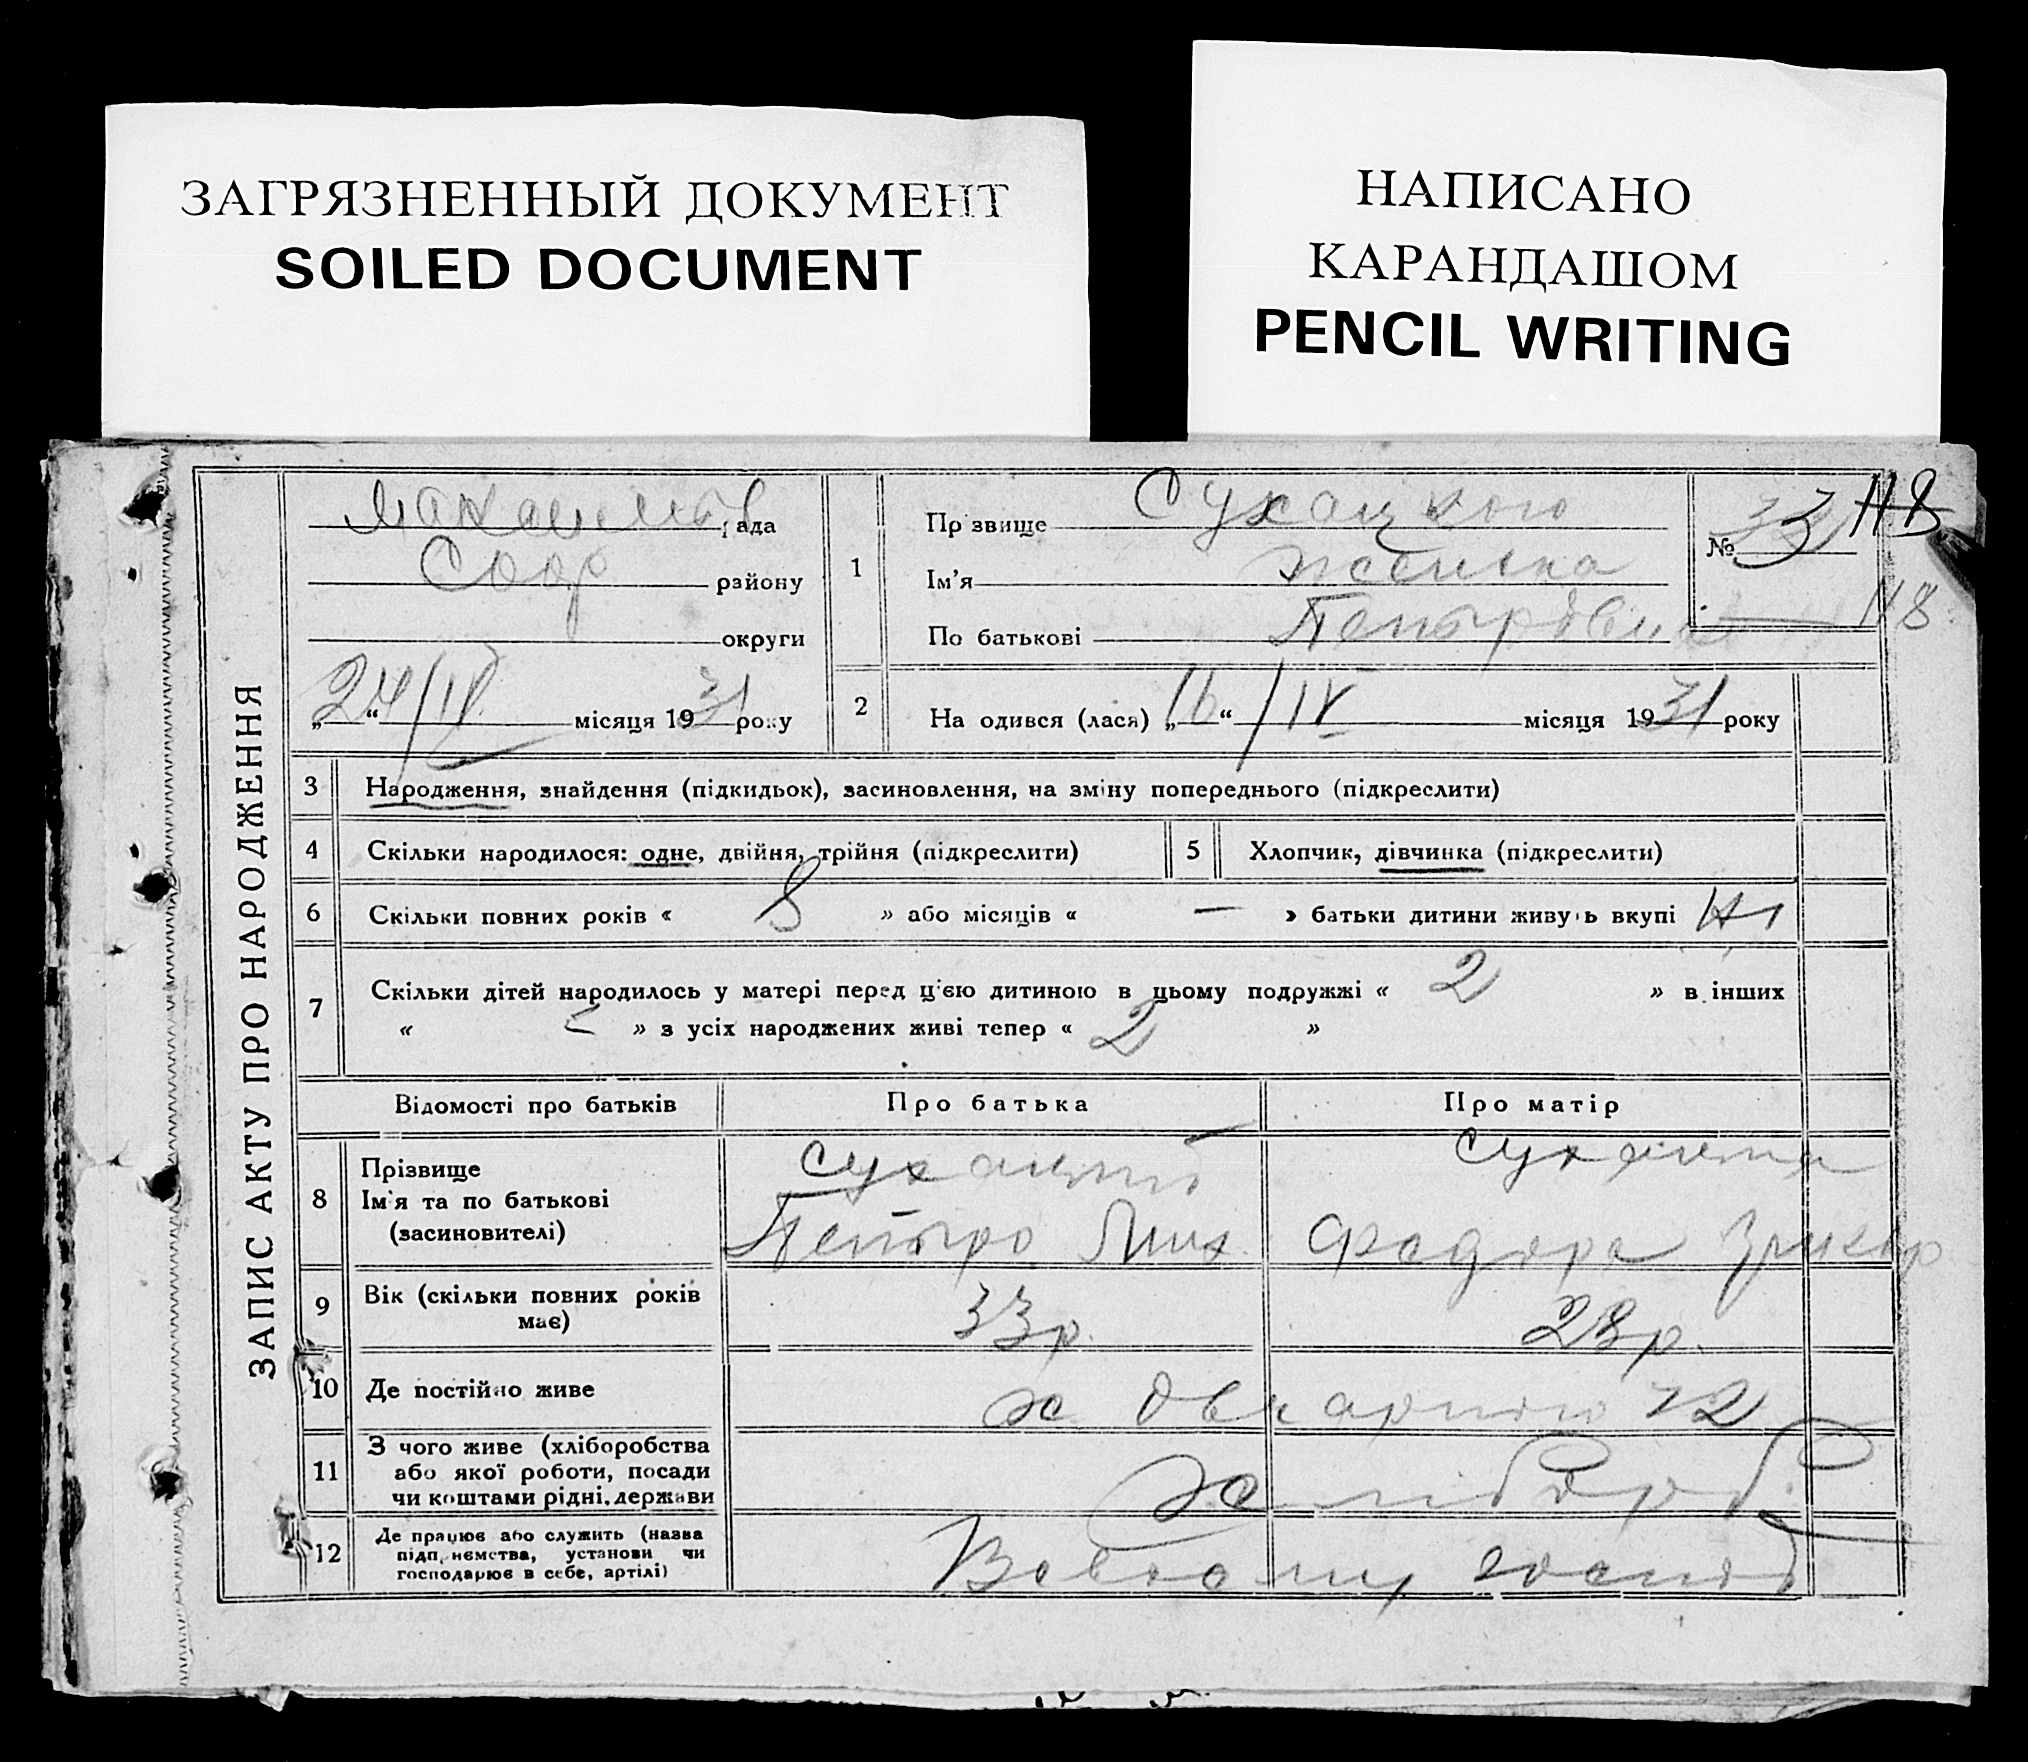 ЗАГРЯЗНЕННЫЙ ДОКУМЕНТ
SOILED DOCUMENT
НАПИСАНО
КАРАНДАШОМ
PENCIL WRITING
ЗАПИС АКТУ ПРО НАРОДЖЕННЯ
рада
району
округи
„24“/IV місяця 1931 року
1
Прізвище Сухацкою
Ім'я
По батькові Петровна
№ 33 118
118
2 На одився (лася) „16“/IV місяця 1931 року
3 Народження, знайдення (підкидьок), засиновлення, на зміну попереднього (підкреслити)
4 Скільки народилося: одне, двійня, трійня (підкреслити)
5 Хлопчик, дівчинка (підкреслити)
6 Скільки повних років « 8 » або місяців « — » батьки дитини живуть вкупі
7 Скільки дітей народилось у матері перед ц'єю дитиною в цьому подружжі « 2 » в інших
« » з усіх народжених живі тепер « 2 »
Відомості про батьків Про батька Про матір
8 Прізвище
Ім'я та по батькові
(засиновителі)
Сухацкий
Петро Мих
Федора
9 Вік (скільки повних років
має)
33р. 28р.
10 Де постійно живе
11 З чого живе (хліборобства
або якої роботи, посади
чи коштами рідні, держави
Хлибороб.
12 Де працює або служить (назва
підприємства, установи чи
господарює в себе, артілі)